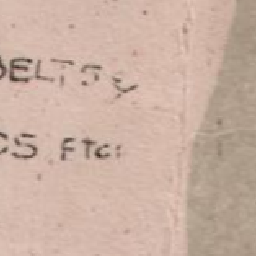 BELTS,
CS ETC: